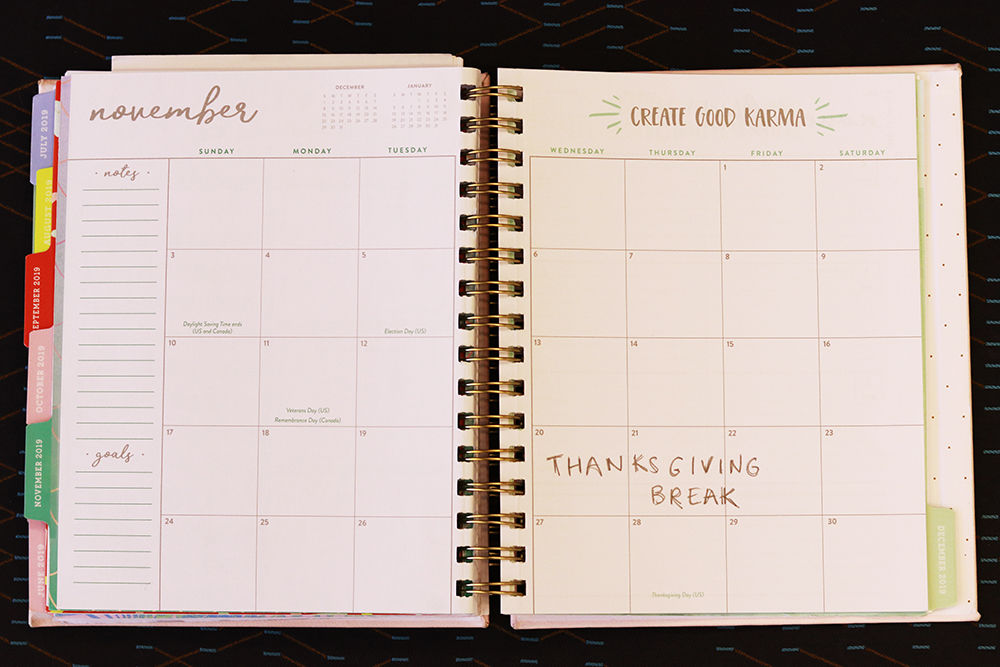 november
DECEMBER
JANUARY
CREATE GOOD KARMA
SUNDAY MONDAY TUESDAY WEDNESDAY THURSDAY FRIDAY SATURDAY
· notes ·
1 2
3 4 5 6 7 8 9
Daylight Saving Time ends
(US and Canada)
Election Day (US)
10 11 12 13 14 15 16
Veterans Day (US)
Remembrance Day (Canada)
17 18 19 20 21 22 23
THANKSGIVING
BREAK
· goals ·
24 25 26 27 28 29 30
Thanksgiving Day (US)
JULY 2019
AUGUST 2019
EPTEMBER 2019
OCTOBER 2019
NOVEMBER 2019
JUNE 2019
DECEMBER 2019